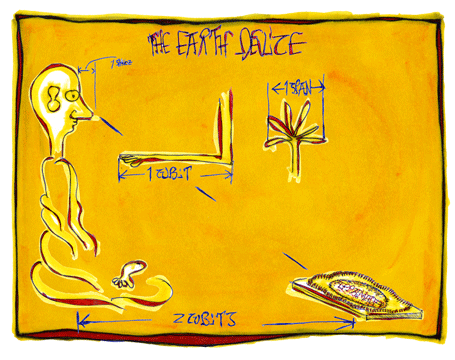 THE EARTH DEVICE
1 SPAN
1 CUBIT
2 CUBITS